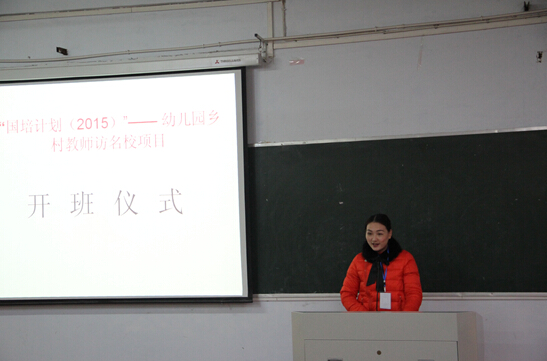 “国培计划（2015）”—— 幼儿园乡
村教师访名校项目
开 班 仪 式